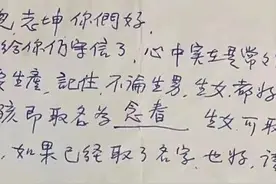 志坤 你們好.
給你们寫信了, 心中实在是常
生產, 記性, 不論生男, 生女, 都好
孩 即取名為 念春 生女可取
, 如果已经取了名字, 也好,